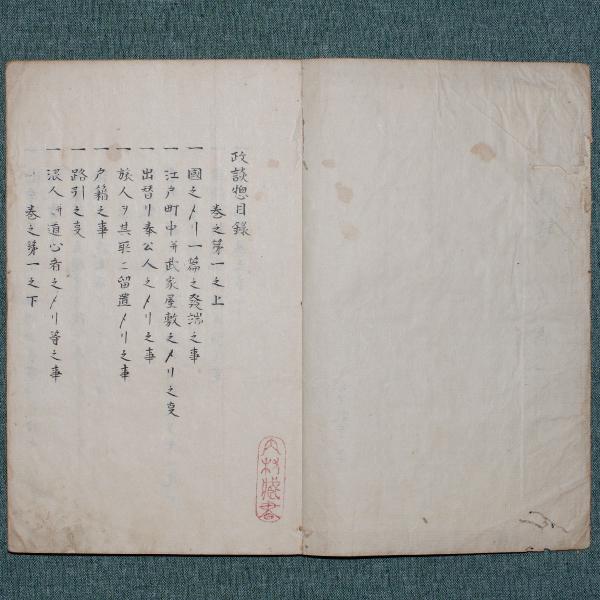 政談惣目録
巻之第一之上
一 國之〆リ一篇之発端之事
一 江戸町中并武家屋敷之〆リ之事
一 出替リ奉公人之〆リ之事
一 旅人ヲ其所ニ留置〆リ之事
一 戸籍之事
一 路引之事
一 浪人并道心者之〆リ等之事
巻之第一之下